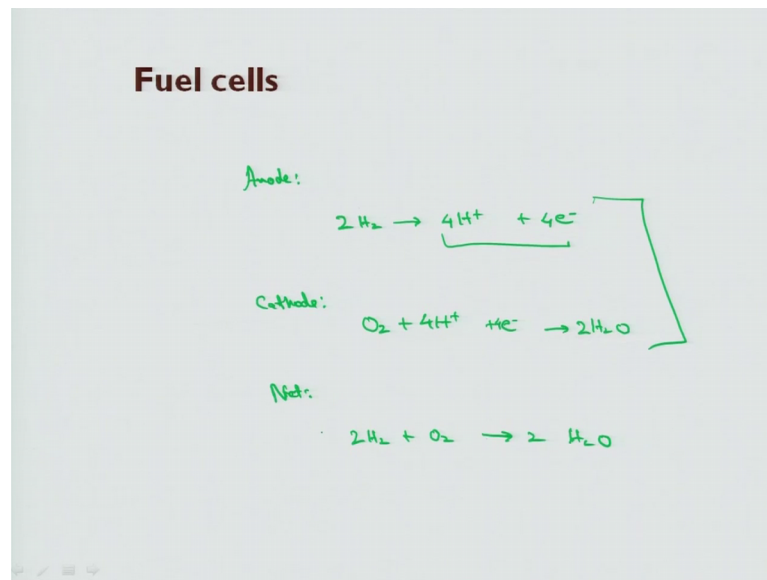 Fuel cells
Anode:
2H₂ → 4H⁺ + 4e⁻
Cathode:
O₂ + 4H⁺ +4e⁻ → 2H₂O
Net:
2H₂ + O₂ → 2 H₂O